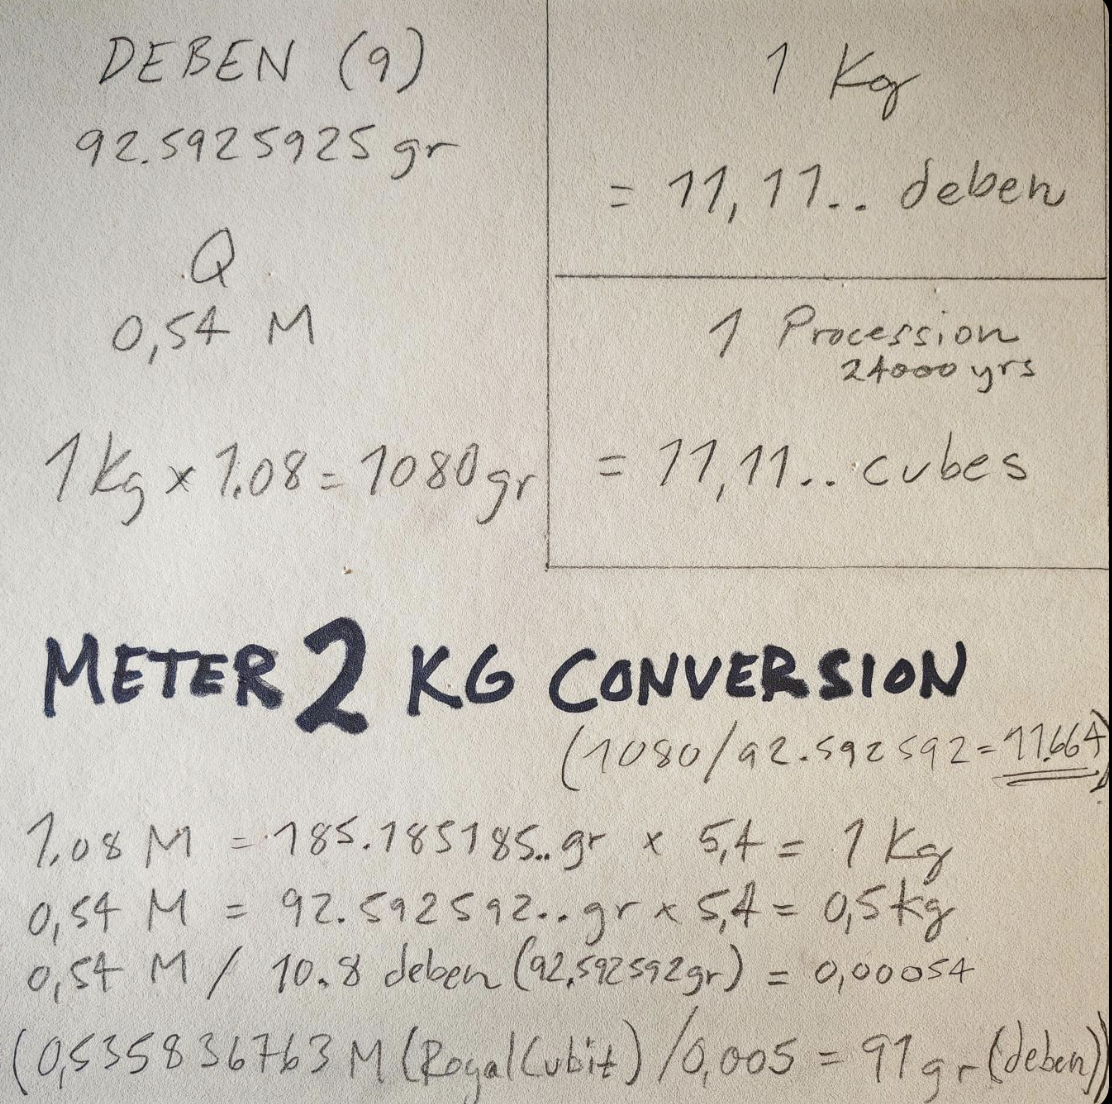 DEBEN (9)
92.5925925 gr
Q
0,54 M
1 Kg x 1.08 = 1080 gr
1 Kg
= 11,11.. deben
1 Procession
24000 yrs
= 11,11.. cubes
METER 2 KG CONVERSION
(1080/92.592592=11.664)
1.08 M = 185.185185.. gr x 5,4 = 1 Kg
0,54 M = 92.592592.. gr x 5,4 = 0,5 kg
0,54 M / 10.8 deben (92,592592gr) = 0,00054
(0,535836763 M (Royal Cubit) / 0,005 = 91 gr (deben))